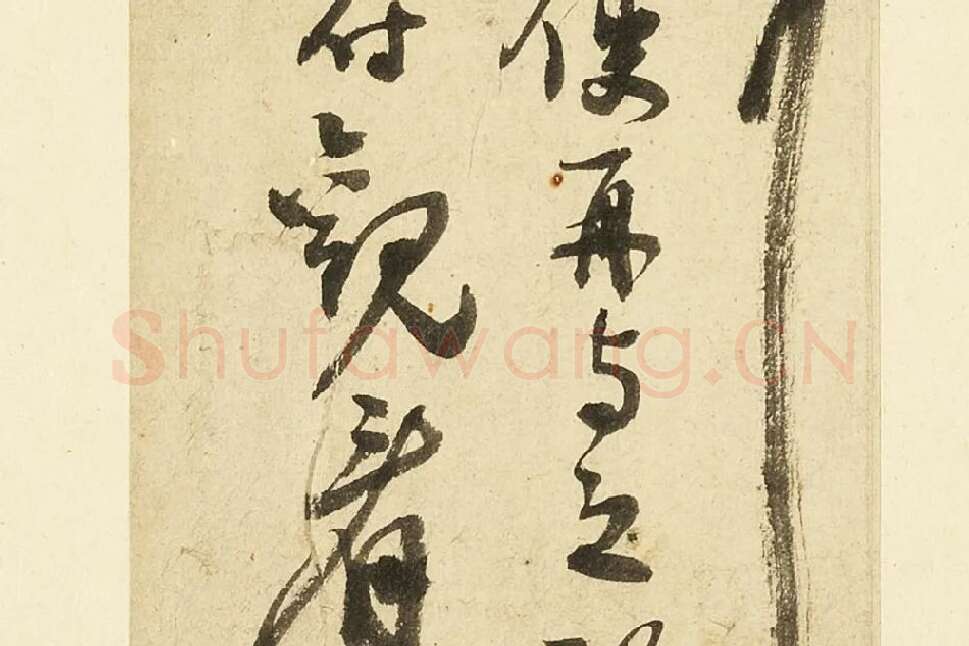 使再与之
付觀看
Shufawang.CN